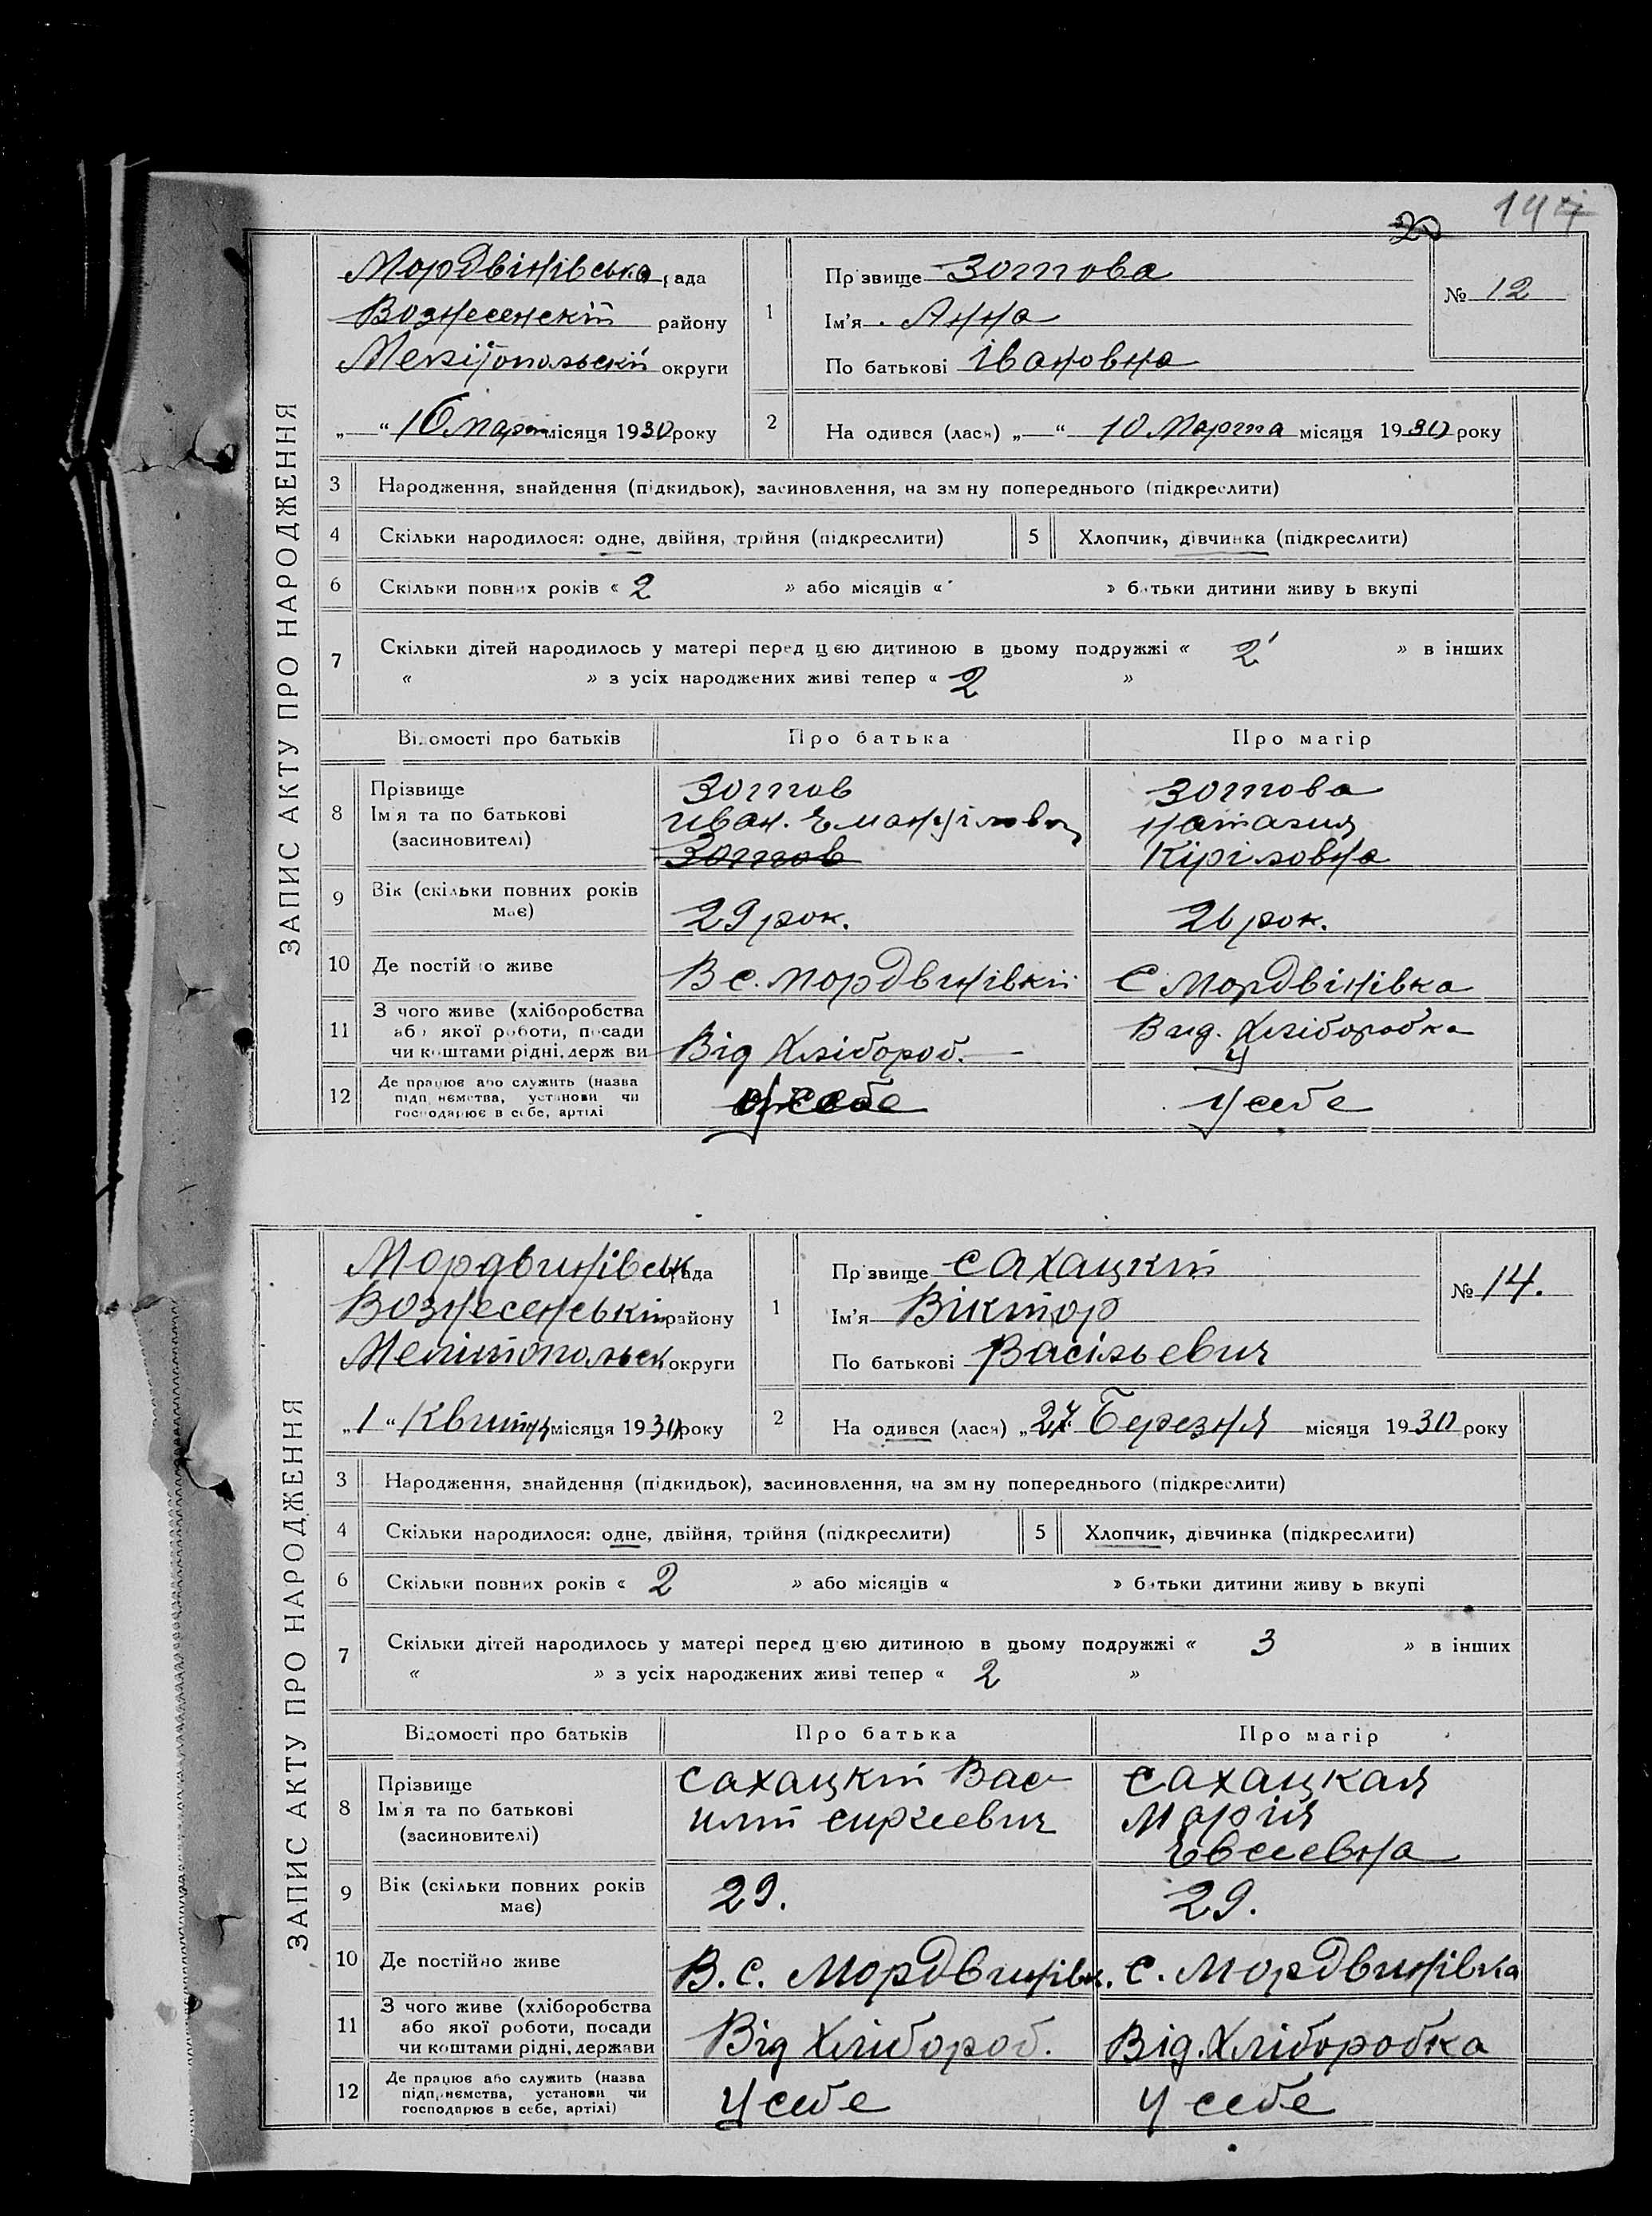 20 147
ЗАПИС АКТУ ПРО НАРОДЖЕННЯ
Мордвінівська рада
Вознесенскій району
Мелітопольскій округи
„—“ 16 Март місяця 1930 року
1
Прізвище Зоттова
Ім'я Анна
По батькові Івановна
№ 12
2 На одився (лася) „—“ 10 Марта місяця 1930 року
3 Народження, знайдення (підкидьок), засиновлення, на зм ну попереднього (підкреслити)
4 Скільки народилося: одне, двійня, трійня (підкреслити) 5 Хлопчик, дівчинка (підкреслити)
6 Скільки повних років « 2 » або місяців « » батьки дитини живу ь вкупі
7 Скільки дітей народилось у матері перед цією дитиною в цьому подружжі « 2 » в інших
« » з усіх народжених живі тепер « 2 »
Відомості про батьків Про батька Про матір
8 Прізвище
Ім'я та по батькові
(засиновителі)
Зоттов
Иван.
Зоттов
Зоттова
Наталия
Кірізовна
9 Вік (скільки повних років
має)
29 рок. 26 рок.
10 Де постійно живе В с. Мордвинівкій С Мордвінівка
11 З чого живе (хліборобства
або якої роботи, посади
чи коштами рідні, держави
Від Хлібороб. Вид. Хліборобка
12 Де працює або служить (назва
підприємства, установи чи
господарює в себе, артілі
у себе у себе
ЗАПИС АКТУ ПРО НАРОДЖЕННЯ
Мордвинівськ рада
Вознесенській району
Мелітопольск округи
„1“ Квитня місяця 1930 року
1
Прізвище Сахацкій
Ім'я Віктор
По батькові Васільевич
№ 14.
2 На одився (лася) „27. Березня місяця 1930 року
3 Народження, знайдення (підкидьок), засиновлення, на зм ну попереднього (підкреслити)
4 Скільки народилося: одне, двійня, трійня (підкреслити) 5 Хлопчик, дівчинка (підкреслити)
6 Скільки повних років « 2 » або місяців « » батьки дитини живу ь вкупі
7 Скільки дітей народилось у матері перед цією дитиною в цьому подружжі « 3 » в інших
« » з усіх народжених живі тепер « 2 »
Відомості про батьків Про батька Про матір
8 Прізвище
Ім'я та по батькові
(засиновителі)
Сахацкій Вас
илій Сиргеевич
Сахацкая
Марія
Евсеевна
9 Вік (скільки повних років
має)
29. 29.
10 Де постійно живе В. С. Мордвинівк. С. Мордвинівка
11 З чого живе (хліборобства
або якої роботи, посади
чи коштами рідні, держави
Від Хлібороб. Від. Хліборобка
12 Де працює або служить (назва
підприємства, установи чи
господарює в себе, артілі)
У себе У себе